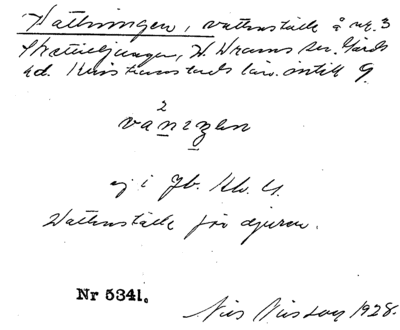 Vattningen, vattenställe å nr. 3
Skättilljunga, V. Vrams sn. Gärds
hd. Kristianstads län. intill 9.
2
vanıŋən
ej i Jb. Kb. U.
Vattenställe för djuren.
Nr 5341.
Nils Nilsson 1928.